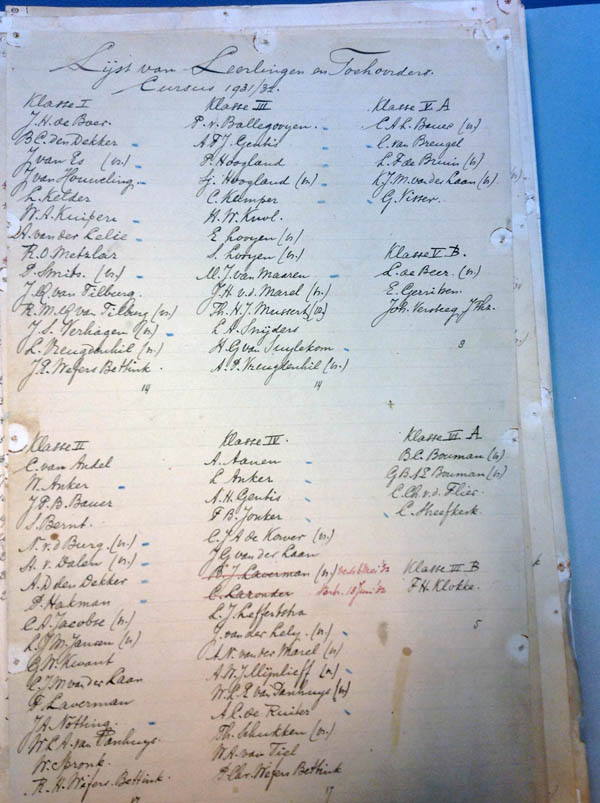 Lijst van Leerlingen en Toehoorders.
Cursus 1931/32.
Klasse I
J.H. de Boer.
B.C. den Dekker
J. van Es (vr.)
J. van Houweling.
L. Kelder
W.A. Kuipers
A. van der Lelie
R.O. Metzlar
P. Smits. (vr.)
J.G. van Tilburg.
R.M.G. van Tilburg (vr.)
J.S. Verhagen (vr.)
L. Vreugdenhil (vr.)
J.P. Wefers Bettink.
14
Klasse III
P. v. Ballegooyen.
A.F.J. Gentis
P. Hoogland
G. Hoogland (vr.)
C. Kamper
H.W. Knol.
E. Looyen (vr)
S. Looyen (vr.)
M.J. van Maaren
J.H. v.d. Marel (vr.)
Th. H.J. Mussert (vr)
L.A. Snijders
H.G. van Suylekom
A.P. Vreugdenhil (vr.)
14
Klasse V A
C.A.L. Bauer (vr)
C. van Breugel
L.F. de Bruin (vr)
K.J.M. van der Laan (vr)
G. Visser.
Klasse V B.
L. de Beer. (vr)
E. Gerritsen.
Joh. Versteeg, JThz.
8
Klasse II
C. van Andel
W. Anker
J.P.B. Bauer
S. Bernt.
N. v.d. Burg. (vr.)
H. v. Dalen (vr.)
A.D. den Dekker
P. Hakman
C.A. Jacobse (vr.)
L.J.M. Jansen (vr)
G.W. Kwant
C.J.M. van der Laan
P. Laverman
J.A. Nötting.
W.L.A. van Panhuys.
W. Spronk.
R.H. Wefers Bettink.
17
Klasse IV.
A. Aanen
L. Anker
A.H. Gentis
F.B. Jonker
C.J.A. de Korver (vr.)
J.G. van der Laan
B.J. Laverman (vr)
C. Laronder
L.J. Leffertstra
J. van der Lely. (vr.)
A.N. van der Marel (vr)
A.W.J. Mijnlieff (vr)
W.C.E. van Panhuys (vr)
A.C. de Ruiter
Th. Schukken (vr.)
W.A. van Tiel
P. Chr. Wefers Bettink
17
Klasse VI A
B.C. Bouman (vr)
G.B.A.E. Bouman (vr)
C. Ch. v.d. Flier.
C. Streefkerk.
Klasse VI B
F.H. Klokke.
5